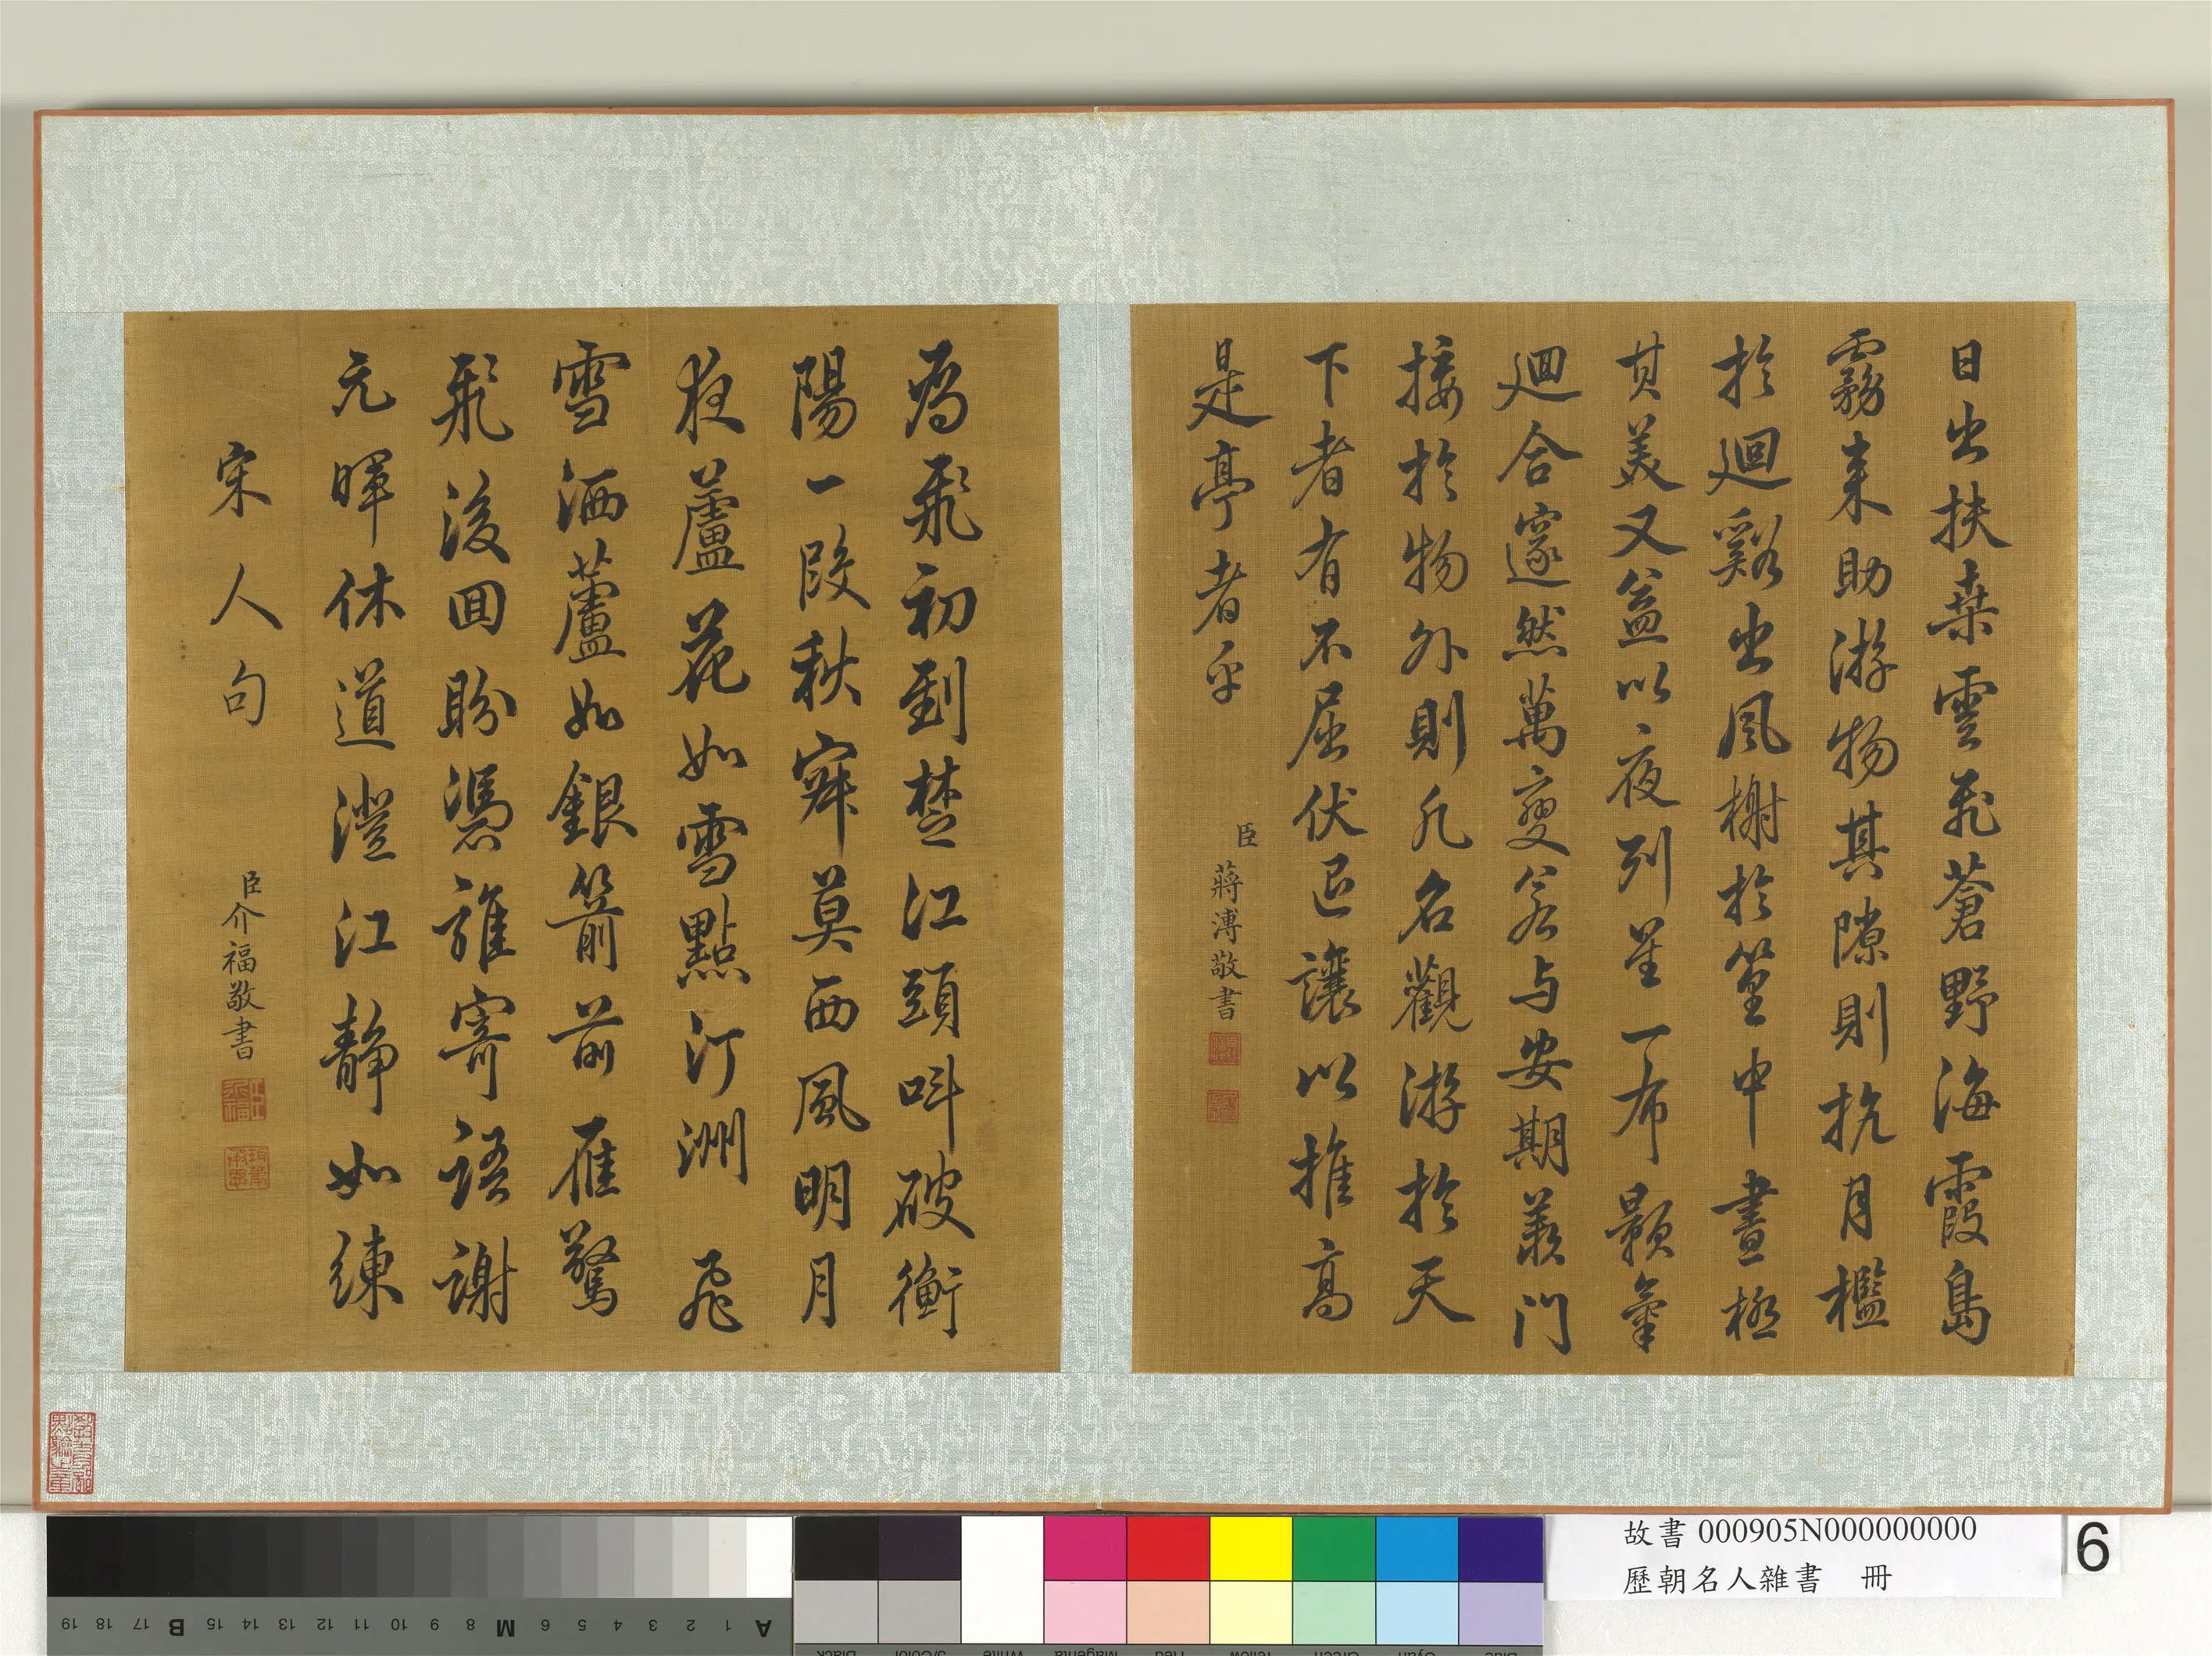 日出扶桒雲飛蒼野海霞島
霧来助游物其隙則抗月檻
於迴谿出風榭於篁中晝極
其美又益以夜列星一布顥氣
迴合邃然萬變若与安期羨门
接於物外則凡名觀游於天
下者有不屈伏退讓以推高
是亭者乎
臣蔣溥敬書
為飛初到楚江頭叫破衡
陽一段秋寂莫西風明月
夜蘆花如雪點汀洲飛
雪洒蘆如銀箭前雁驚
飛後囬盼憑誰寄語謝
元暉休道澄江靜如練
宋人句
臣介福敬書
故書 000905N000000000
歷朝名人雜書 冊
6
19 18 17 B 15 14 13 12 11 10 9 8 M 6 5 4 3 2 1 A